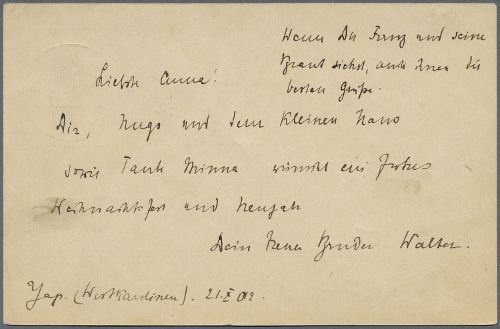 Wenn Du Franz und seine
Braut siehst, auch ihnen die
besten Grüße.
Liebste Anna!
Dir, Hugo und dem kleinen Hans
sowie Tante Minna wünscht ein frohes
Weihnachtsfest und Neujahr
Dein treuer Bruder Walter.
Yap. (Westkarolinen). 21.X 02.